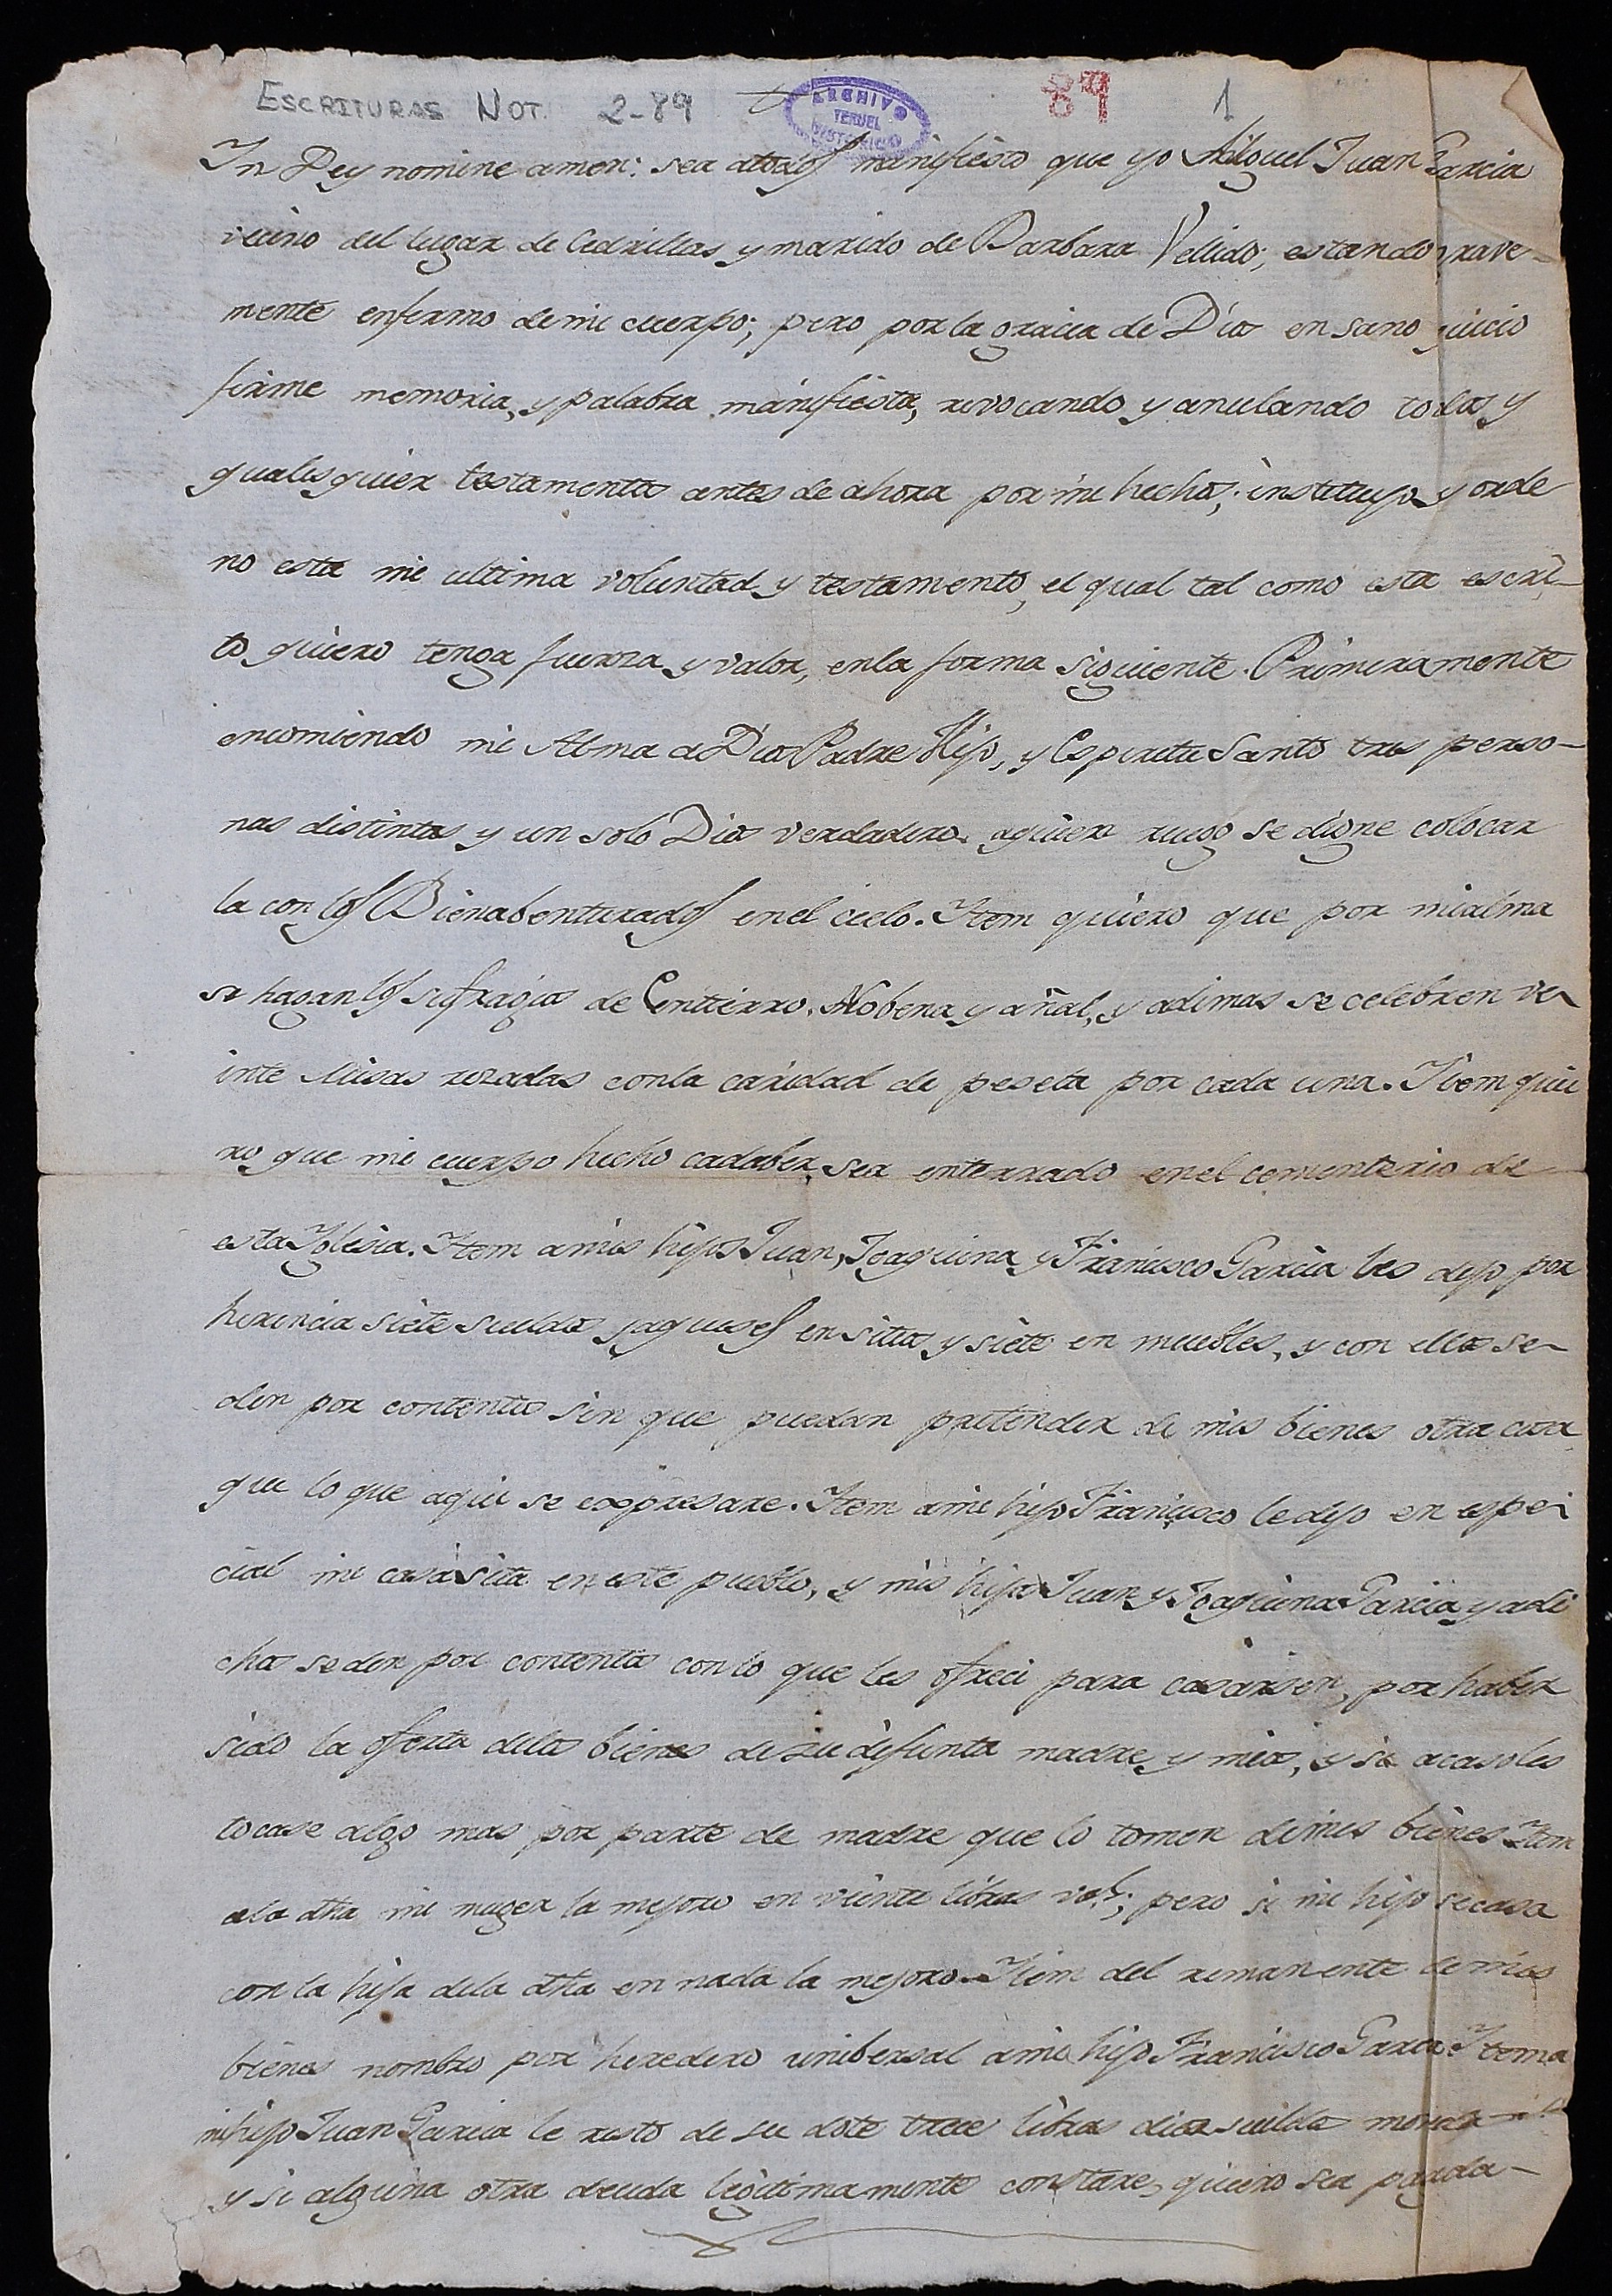 ESCRITURAS NOT. 2-89
ARCHIVO TERUEL HISTORICO
89
1
In Dey nomine amen: sea atodos manifiesto que yo Miguel Juan Garcia
vecino del lugar de Cedrillas y marido de Barbara Vellido; estando grave-
mente enfermo de mi cuerpo; pero por la gracia de Dios en sano juicio
firme memoria, y palabra manifiesta, revocando y anulando todos y
qualesquier testamentos antes de ahora por mi hechos; instituyo y orde
no esta mi ultima voluntad y testamento, el qual tal como esta escri-
to quiero tenga fuerza y valor, enla forma siguiente. Primeramente
encomiendo mi Alma a Dios Padre Hijo, y Espiritu Santo tres perso-
nas distintas y un solo Dios verdadero. aquien ruego se digne colocar
la con los Bienabenturados enel cielo. Item quiero que por mialma
se hagan los sufragios de Entierro, Nobena y añal, y ademas se celebren ve
inte Misas rezadas conla caridad de peseta por cada una. Item quie
ro que mi cuerpo hecho cadaber, sea enterrado enel cementerio de
esta Iglesia. Item amis hijos Juan, Joaquina y Francisco Garcia les dejo por
herencia siete sueldos jaqueses en sitios y siete en muebles, y con ellos se
den por contentos sin que puedan pretender de mis bienes otra cosa
que lo que aqui se expresare. Item ami hijo Francisco le dejo en espe
cial mi casa sita en este pueblo, y mis hijos Juan y Joaquina Garcia ya di
chos se den por contentos con lo que les ofreci para casarsen, por haber
sido la oferta delos bienes de su difunta madre y mios, y si acaso les
tocase algo mas por parte de madre que lo tomen demis bienes Item
ala dha mi muger la mejoro en veinte libras vals; pero si mi hijo se casa
con la hija dela dha en nada la mejoro. Item del remanente de mis
bienes nombro por heredero unibersal ami hijo Francisco Garcia Item a
mi hijo Juan Garcia le resto de su dote trece libras diez sueldos moneda
y si alguna otra deuda legitimamente constare, quiero sea pagada-